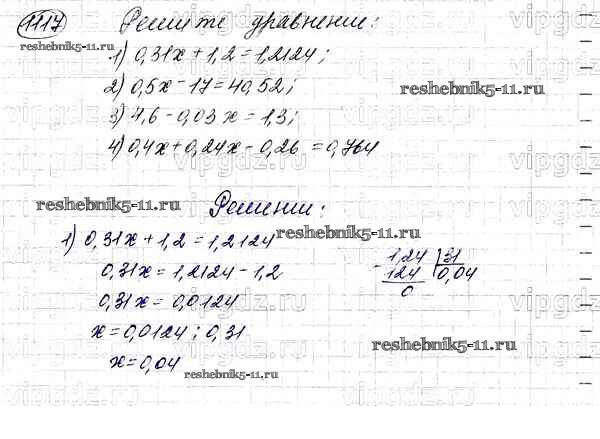 1117 Решите уравнение:
reshebnik5-11.ru
1) 0,31x + 1,2 = 1,2124;
2) 0,5x - 17 = 40,52;
reshebnik5-11.ru
3) 4,6 - 0,03x = 1,3;
4) 0,4x + 0,24x - 0,26 = 0,764
reshebnik5-11.ru
Решение:
1) 0,31x + 1,2 = 1,2124
reshebnik5-11.ru
0,31x = 1,2124 - 1,2
0,31x = 0,0124
x = 0,0124 : 0,31
x = 0,04
- 1,24 | 31
124 | 0,04
0
reshebnik5-11.ru
reshebnik5-11.ru
vipgdz.ru